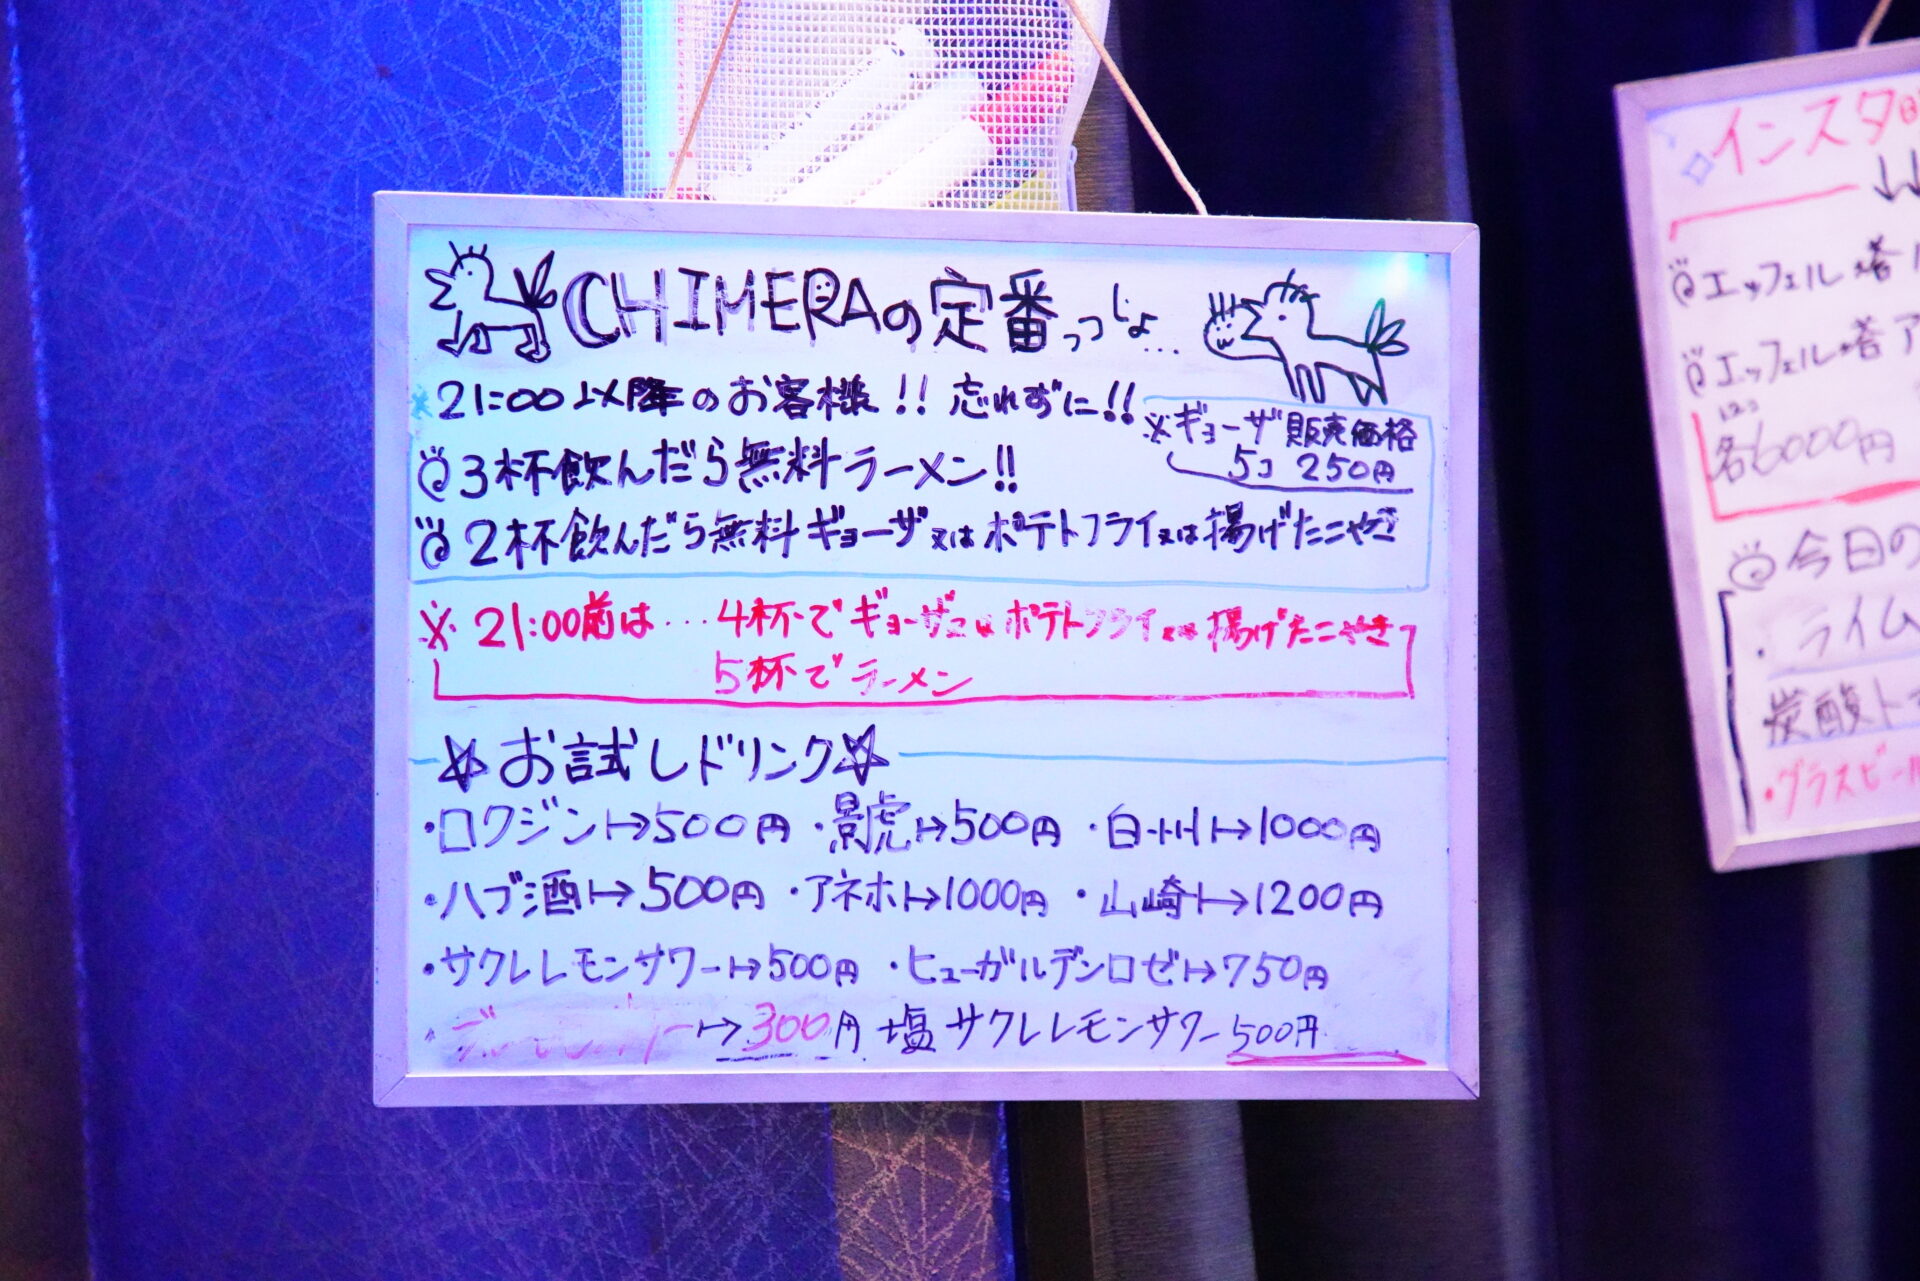 CHIMERAの定番っつしょ…
*21:00以降のお客様!! 忘れずに!!
※ギョーザ販売価格
5コ 250円
3杯飲んだら無料ラーメン!!
2杯飲んだら無料ギョーザ又はポテトフライ又は揚げたこやき
※21:00前は…4杯でギョーザ又はポテトフライ又は揚げたこやき
5杯でラーメン
☆お試しドリンク☆
・ロクジン↦500円 ・景虎↦500円 ・白州↦1000円
・ハブ酒↦500円 ・アネホ↦1000円 ・山崎↦1200円
・サクレレモンサワー↦500円 ・ヒューガルデンロゼ↦750円
↦300円 塩サクレレモンサワー500円
インスタ映
↓↓
エッフェル塔
エッフェル塔ア
各6000円
今日の
・ライム
炭酸ト
・グラスビール